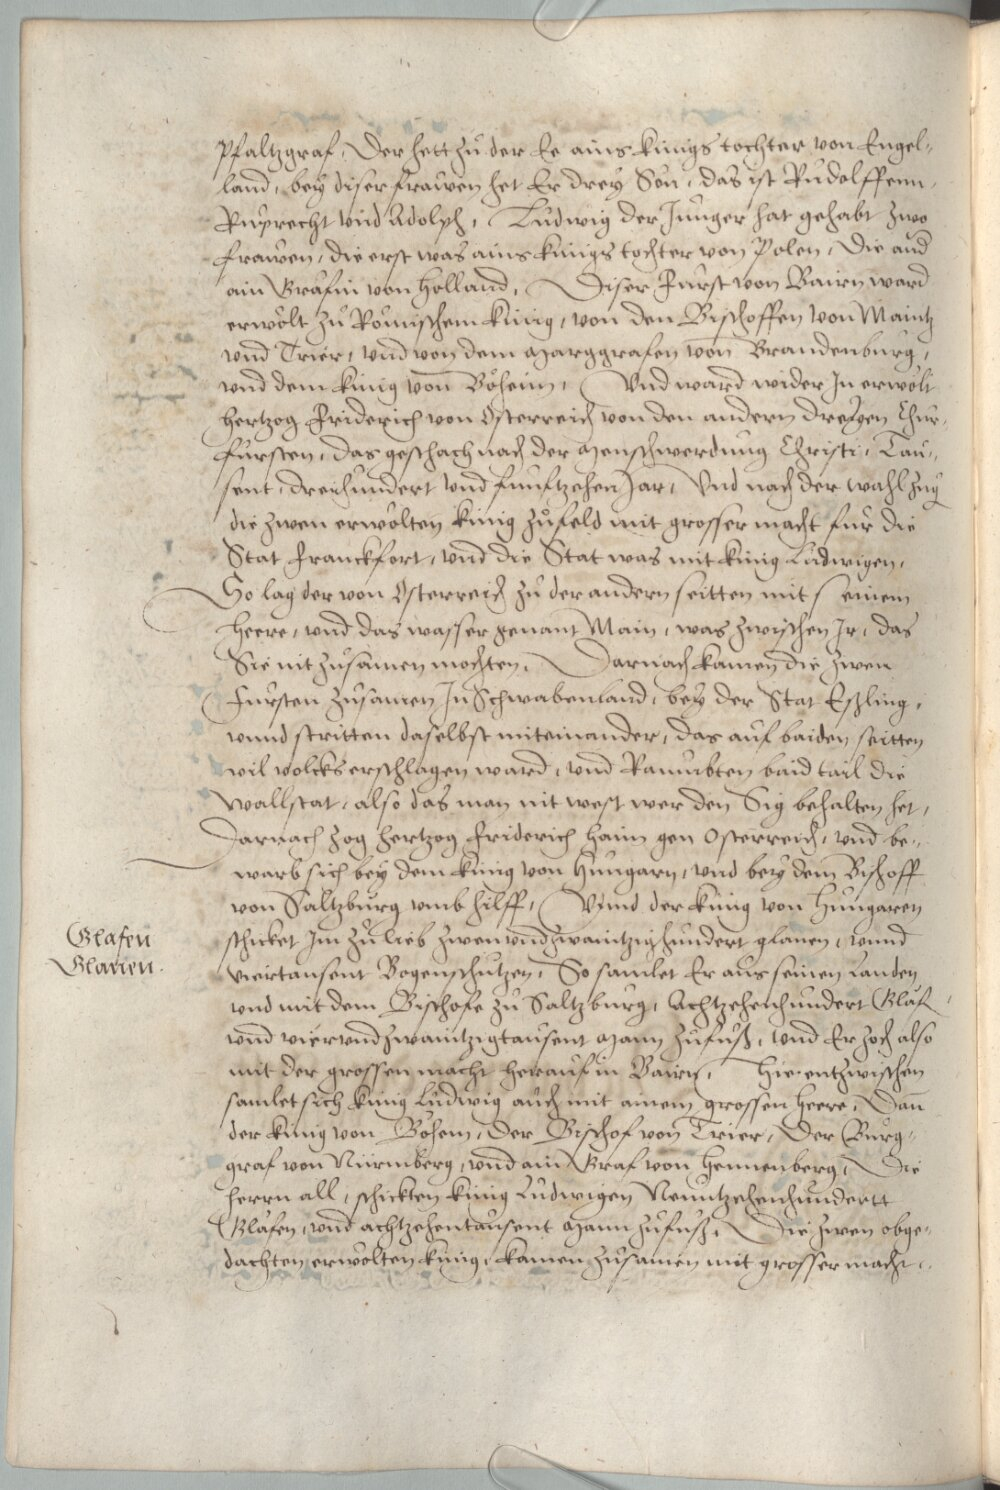 Pfaltzgraf, Der hett zu der Ee ains künigs tochter von Engel-
land, bey diser frawen het Er drey Sön, das ist Rudolffenn,
Ruprecht vnd Adolph, Ludwig der Junger hat gehabt zwo
frawen, die erst was ains künigs tochter von Polen, Die and
ain Gräfin von Holland, Diser Fürst von Bairn ward
erwölt zu Römischem künig, von den Bischoffen von Maintz
vnd Trier, vnd von dem Marggrafen von Brandenburg,
vnd dem künig von Böheim, Vnd ward wider Jn erwölt
Hertzog Friderich von Osterreich von den andern dreyen Chur-
fürsten, das geschach nach der Menschwerdung Christi, Tau-
sent, dreihundert vnd funftzehen Jar, Vnd nach der wahl zug
die zwen erwölten künig zů feld mit grosser macht für die
Stat Franckfort, vnd die Stat was mit künig Ludwigen,
So lag der von Osterreich zu der andern seitten mit seinem
Heere, vnd das wasser genant Main, was zwischen Jr, das
Sie nit zusamen mochten, Darnach kamen die zwen
Fürsten zusamen Jn Schwabenland, bey der Stat Eßling,
vnnd stritten daselbst miteinander, das auf baiden seitten
vil volcks erschlagen ward, vnd Ramubten baid tail die
Wallstat, also das man nit west wer den Sig behalten het,
Darnach zog Hertzog Friderich haim gen Osterreich, vnd be-
warb sich bey dem künig von Hungarn, vnd bey dem Bischoff
von Saltzburg vmb hilff, Vnnd der künig von Hungaren
schicket Jm zu lieb zwenvndzwaintzighundert glanen, vnnd
viertausent Bogenschutzen, So samlet Er aus seinen Landen
vnd mit dem Bischofe zu Saltzburg, Achtzehenhundert Gläf
vnd viervndzwaintzigtausent Mann zufuß, vnd Er zoch also
mit der grossen macht herauf in Bairn, Hie entzwischen
samlet sich künig Ludwig auch mit ainem grossen Heere, Dan
der künig von Böhem, Der Bischof von Trier, Der Burg-
graf von Nürmberg, vnd ain Graf von Hennenberg, Die
Herrn all, schickten künig Ludwigen Neuntzehenhundertt
Gläfen, vnd achtzehentausent Mann zufuß, Die zwen obge-
dachten erwölten künig, kamen zusamen mit grosser macht,
Glafen
Glanen.